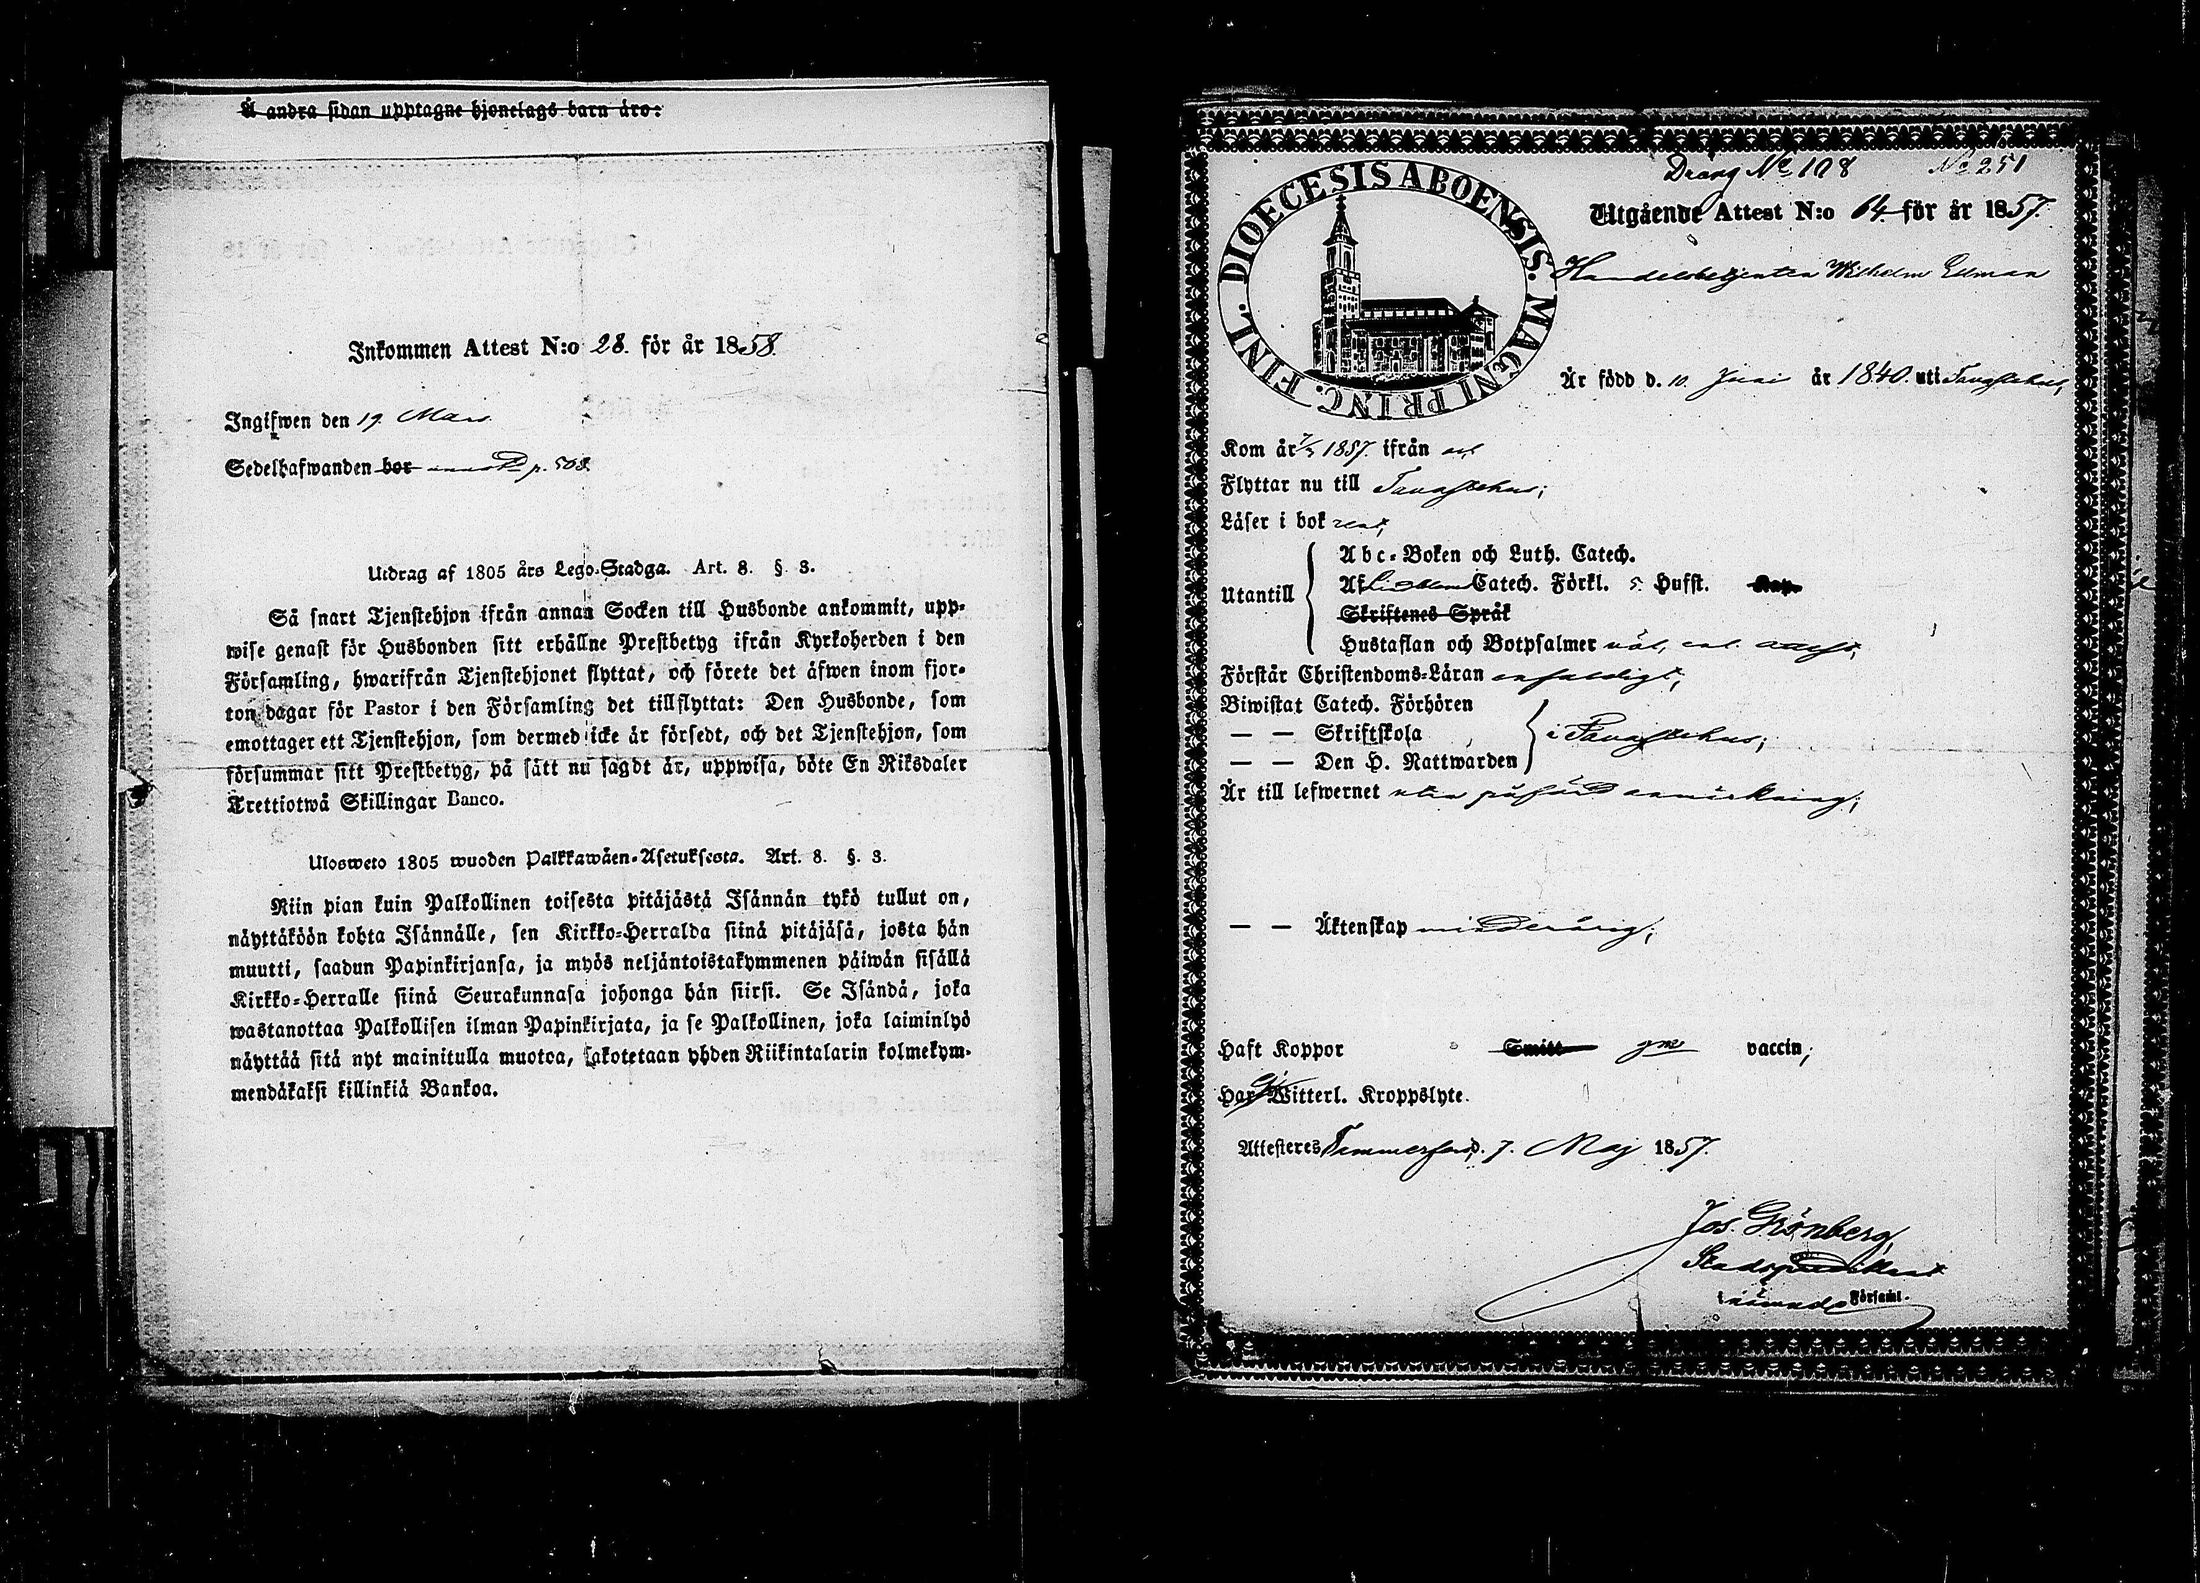 Å andra sidan upptagne hjonelags barn äro:
Inkommen Attest N:o 28. för år 1858.
Ingifwen den 19. Mars
Sedelhafwanden bor p. 508.
Utdrag af 1805 års Lego-Stadga. Art. 8. § 3.
Så snart Tjenstehjon ifrån annan Socken till Husbonde ankommit, upp-
wise genast för Husbonden sitt erhållne Prestbetyg ifrån Kyrkoherden i den
Församling, hwarifrån Tjenstehjonet flyttat, och förete det äfwen inom fjor-
ton dagar för Pastor i den Församling det tillflyttat: Den Husbonde, som
emottager ett Tjenstehjon, som dermed icke är försedt, och det Tjenstehjon, som
försummar sitt Prestbetyg, på sätt nu sagdt är, uppwisa, böte En Riksdaler
Trettiotwå Skillingar Banco.
Ulosweto 1805 wuoden Palkkawäen-Asetuksesta. Art. 8. §. 3.
Niin pian kuin Palkollinen toisesta pitäjästä Isännän tykö tullut on,
näyttäköön kohta Isännälle, sen Kirkko-Herralda siinä pitäjäsä, josta hän
muutti, saadun Papinkirjansa, ja myös neljäntoistakymmenen päiwän sisällä
Kirkko-Herralle siinä Seurakunnasa johonga hän siirsi. Se Isändä, joka
wastanottaa Palkollisen ilman Papinkirjata, ja se Palkollinen, joka laiminlyö
näyttää sitä nyt mainitulla muotoa, sakotetaan yhden Riikintalarin kolmekym-
mendäkaksi killinkiä Bankoa.
Dräng No 108 No 251
DIOECESIS ABOENSIS. MAGNI PRINC. FINL.
Utgående Attest N:o 64. för år 1857.
Handelsbetjenten Wilhelm Ekman
Är född d. 10 Juni år 1840. uti Tavastehus,
Kom år 7/5 1857. ifrån
Flyttar nu till Tavastehus;
Läser i bok rent,
Utantill
Abc-Boken och Luth. Catech.
Af Catech. Förkl. 5. Hufst. Kap.
Skriftenes Språk
Hustaflan och Botpsalmer väl, enl. attest,
Förstår Christendoms-Läran enfaldigt,
Biwistat Catech. Förhören
— — Skriftskola i Tavastehus;
— — Den H. Nattwarden
Är till lefwernet utan påförd anmärkning;
— — Äktenskap minderårig;
Haft Koppor Smitt gm vaccin;
Har Ej Witterl. Kroppslyte.
Attesteres Tammerfors, d. 7. Maj 1857.
Jos. Grönberg,
Stadspredikant
i nämnde Församl.